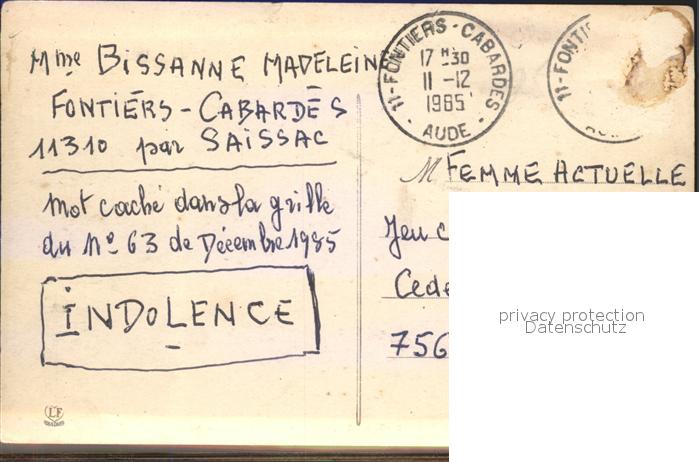 Mme BISSANNE MADELEINE
FONTIÉRS-CABARDÉS
11310 par SAISSAC
Mot caché dans la grille
du N° 63 de Décembre 1985
INDOLENCE
LF
11-FONTIERS-CABARDES-
17 H30
11-12
1985
AUDE
11-FONTIE
M FEMME ACTUELLE
Jeu c
Cede
756
privacy protection
Datenschutz